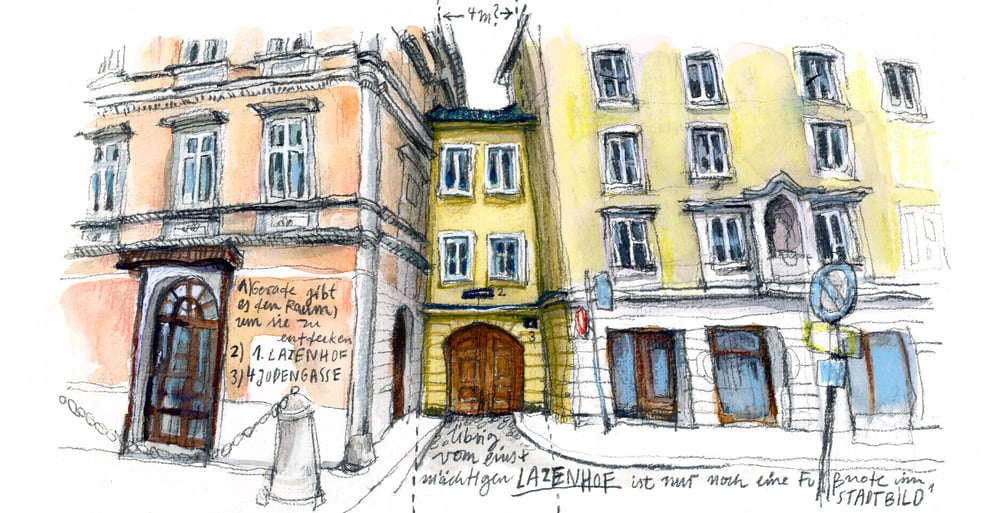 4m?
1) Gerade gibt
es den Raum,
um sie zu
entdecken
2) 1. LAZENHOF
3) 4 JUDENGASSE
2
3
Übrig
vom einst
mächtigen LAZENHOF ist nur noch eine Fußnote im
STADTBILD¹